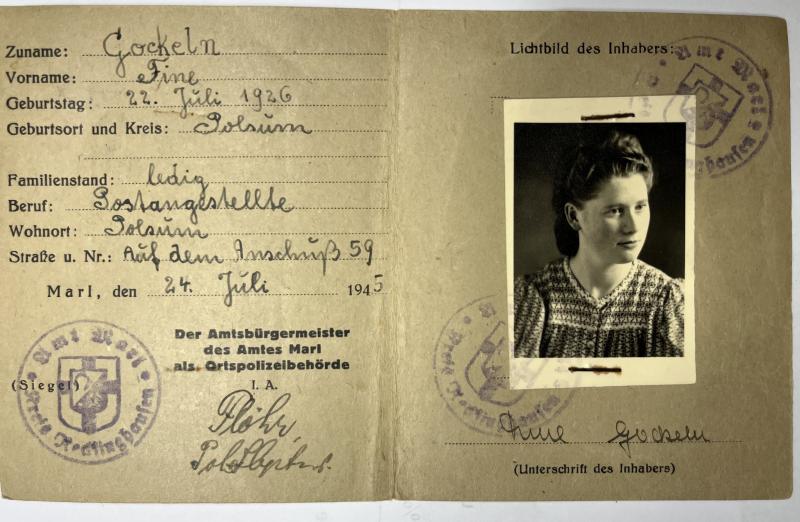 Zuname: Gockeln
Vorname: Fine
Geburtstag: 22. Juli 1926
Geburtsort und Kreis: Polsum
Familienstand: ledig
Beruf: Postangestellte
Wohnort: Polsum
Straße u. Nr.: Auf dem Anschuß 59
Marl, den 24. Juli 1945
Der Amtsbürgermeister
des Amtes Marl
als Ortspolizeibehörde
(Siegel)
I. A.
Amt Marl
Kreis Recklinghausen
Lichtbild des Inhabers:
Amt Marl
Recklinghausen
Kreis Recklinghausen
Gockeln
(Unterschrift des Inhabers)